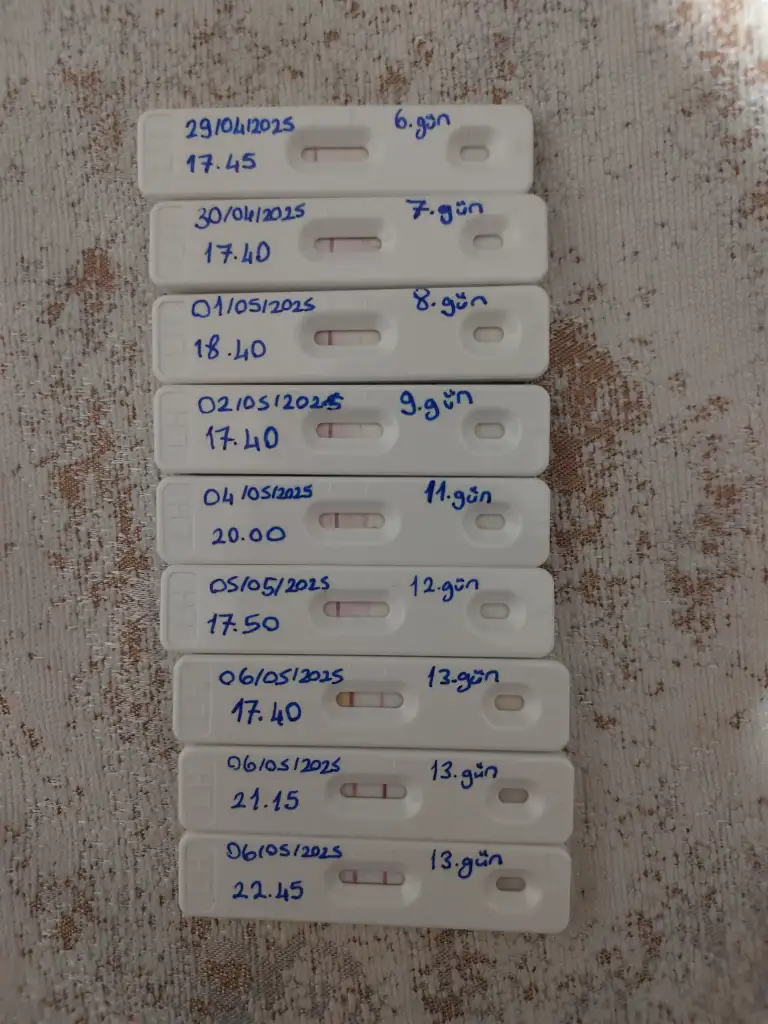 29/04/2025
6.gün
17.45
30/04/2025
7.gün
17.40
01/05/2025
8.gün
18.40
02/05/2025
9.gün
17.40
04/05/2025
11.gün
20.00
05/05/2025
12.gün
17.50
06/05/2025
13.gün
17.40
06/05/2025
13.gün
21.15
06/05/2025
13.gün
22.45